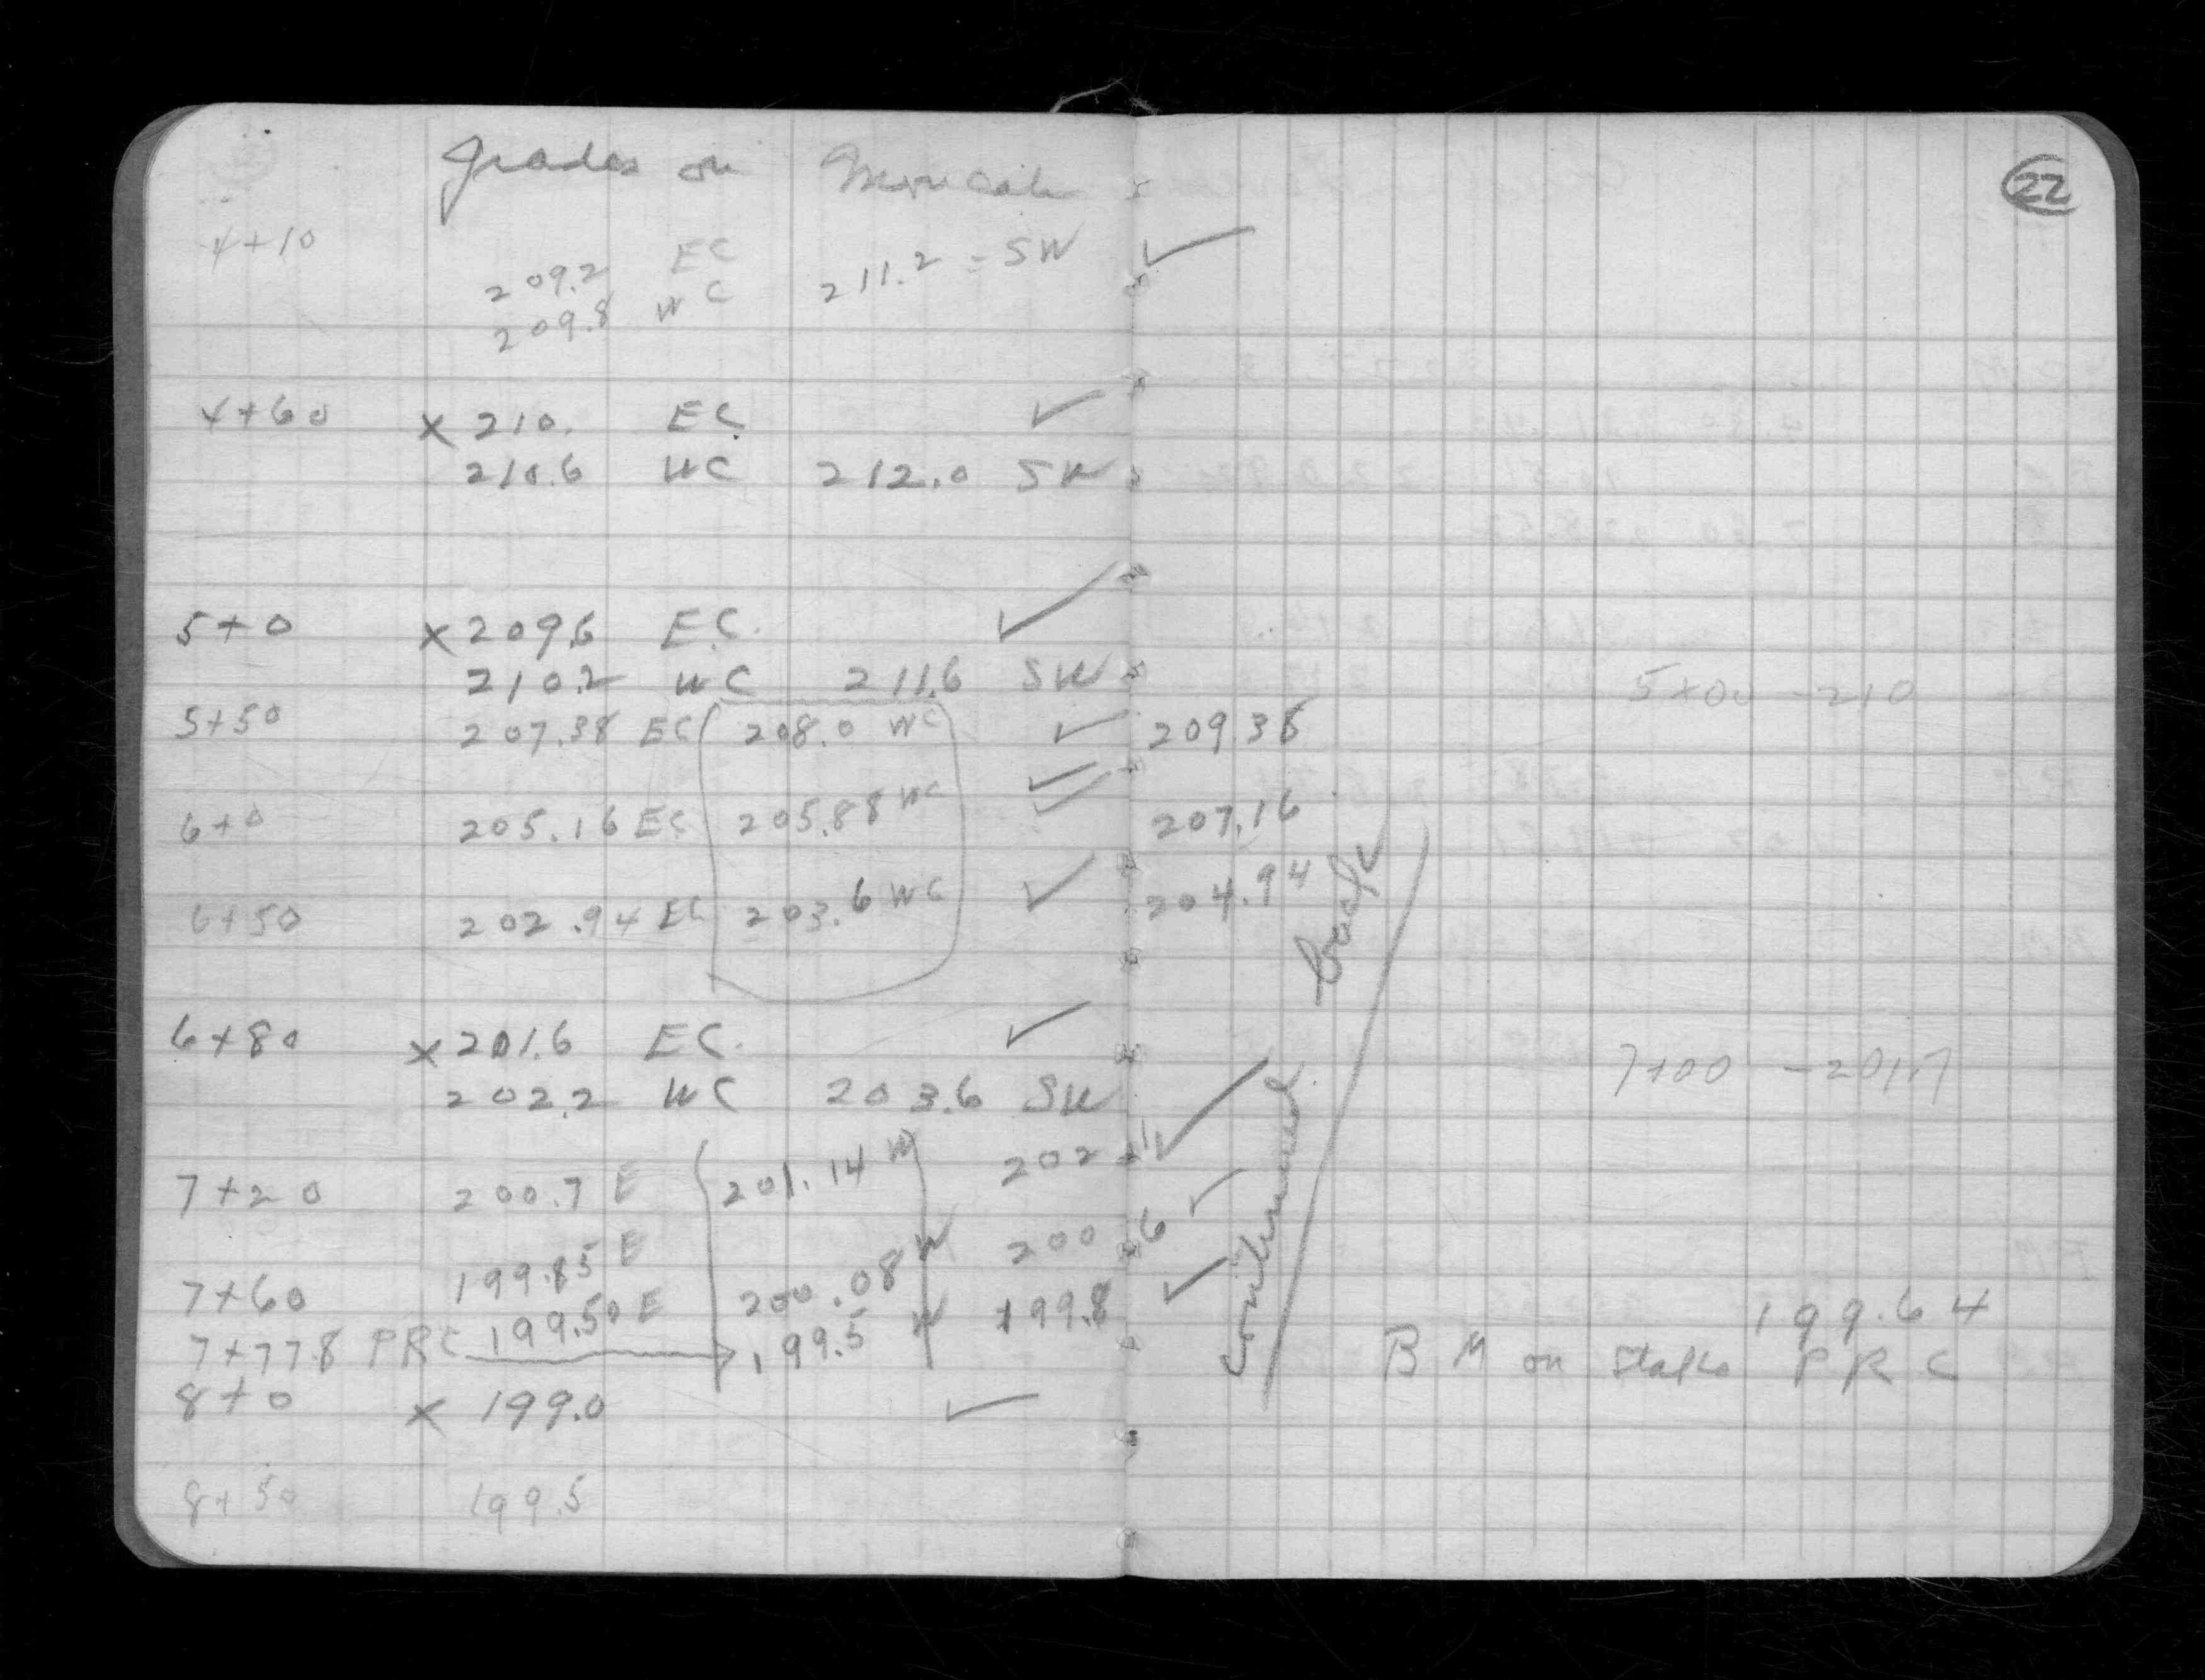 22
Grades on
4+10
209.2 EC 211.2 = SW ✓
209.8 WC
4+60 x 210. EC ✓
210.6 WC 212.0 SW
5+0 x 209.6 EC. ✓
210.2 WC 211.6 SW
5+00 - 210
5+50 207.38 EC 208.0 WC ✓ 209.38
6+0 205.16 EC 205.88 WC ✓ 207.16
6+50 202.94 EC 203.6 WC ✓ 204.94
back
6+80 x 201.6 EC. ✓
7+00 - 201.7
202.2 WC 203.6 SW
7+20 200.7 E 201.14 W ✓
7+60 199.85 E 200.08 W 200.6 ✓
7+77.8 PRC 199.50 E 199.5 W 199.8 ✓
199.64
BM on Stake PRC
8+0 x 199.0 ✓
8+50 199.5